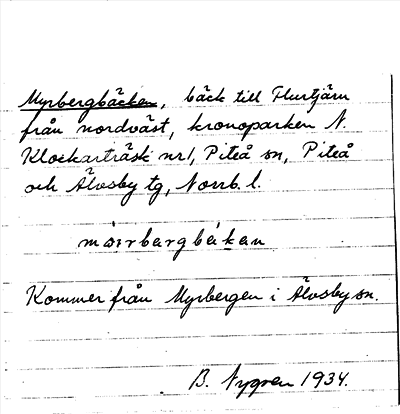 Myrbergbäcken, bäck till Flurtjärn
från nordväst, kronoparken N.
Klockarträsk nr 1, Piteå sn, Piteå
och Älvsby tg, Norrb. l.
Kommer från Myrbergen i Älvsby sn.
B. Nygren 1934.